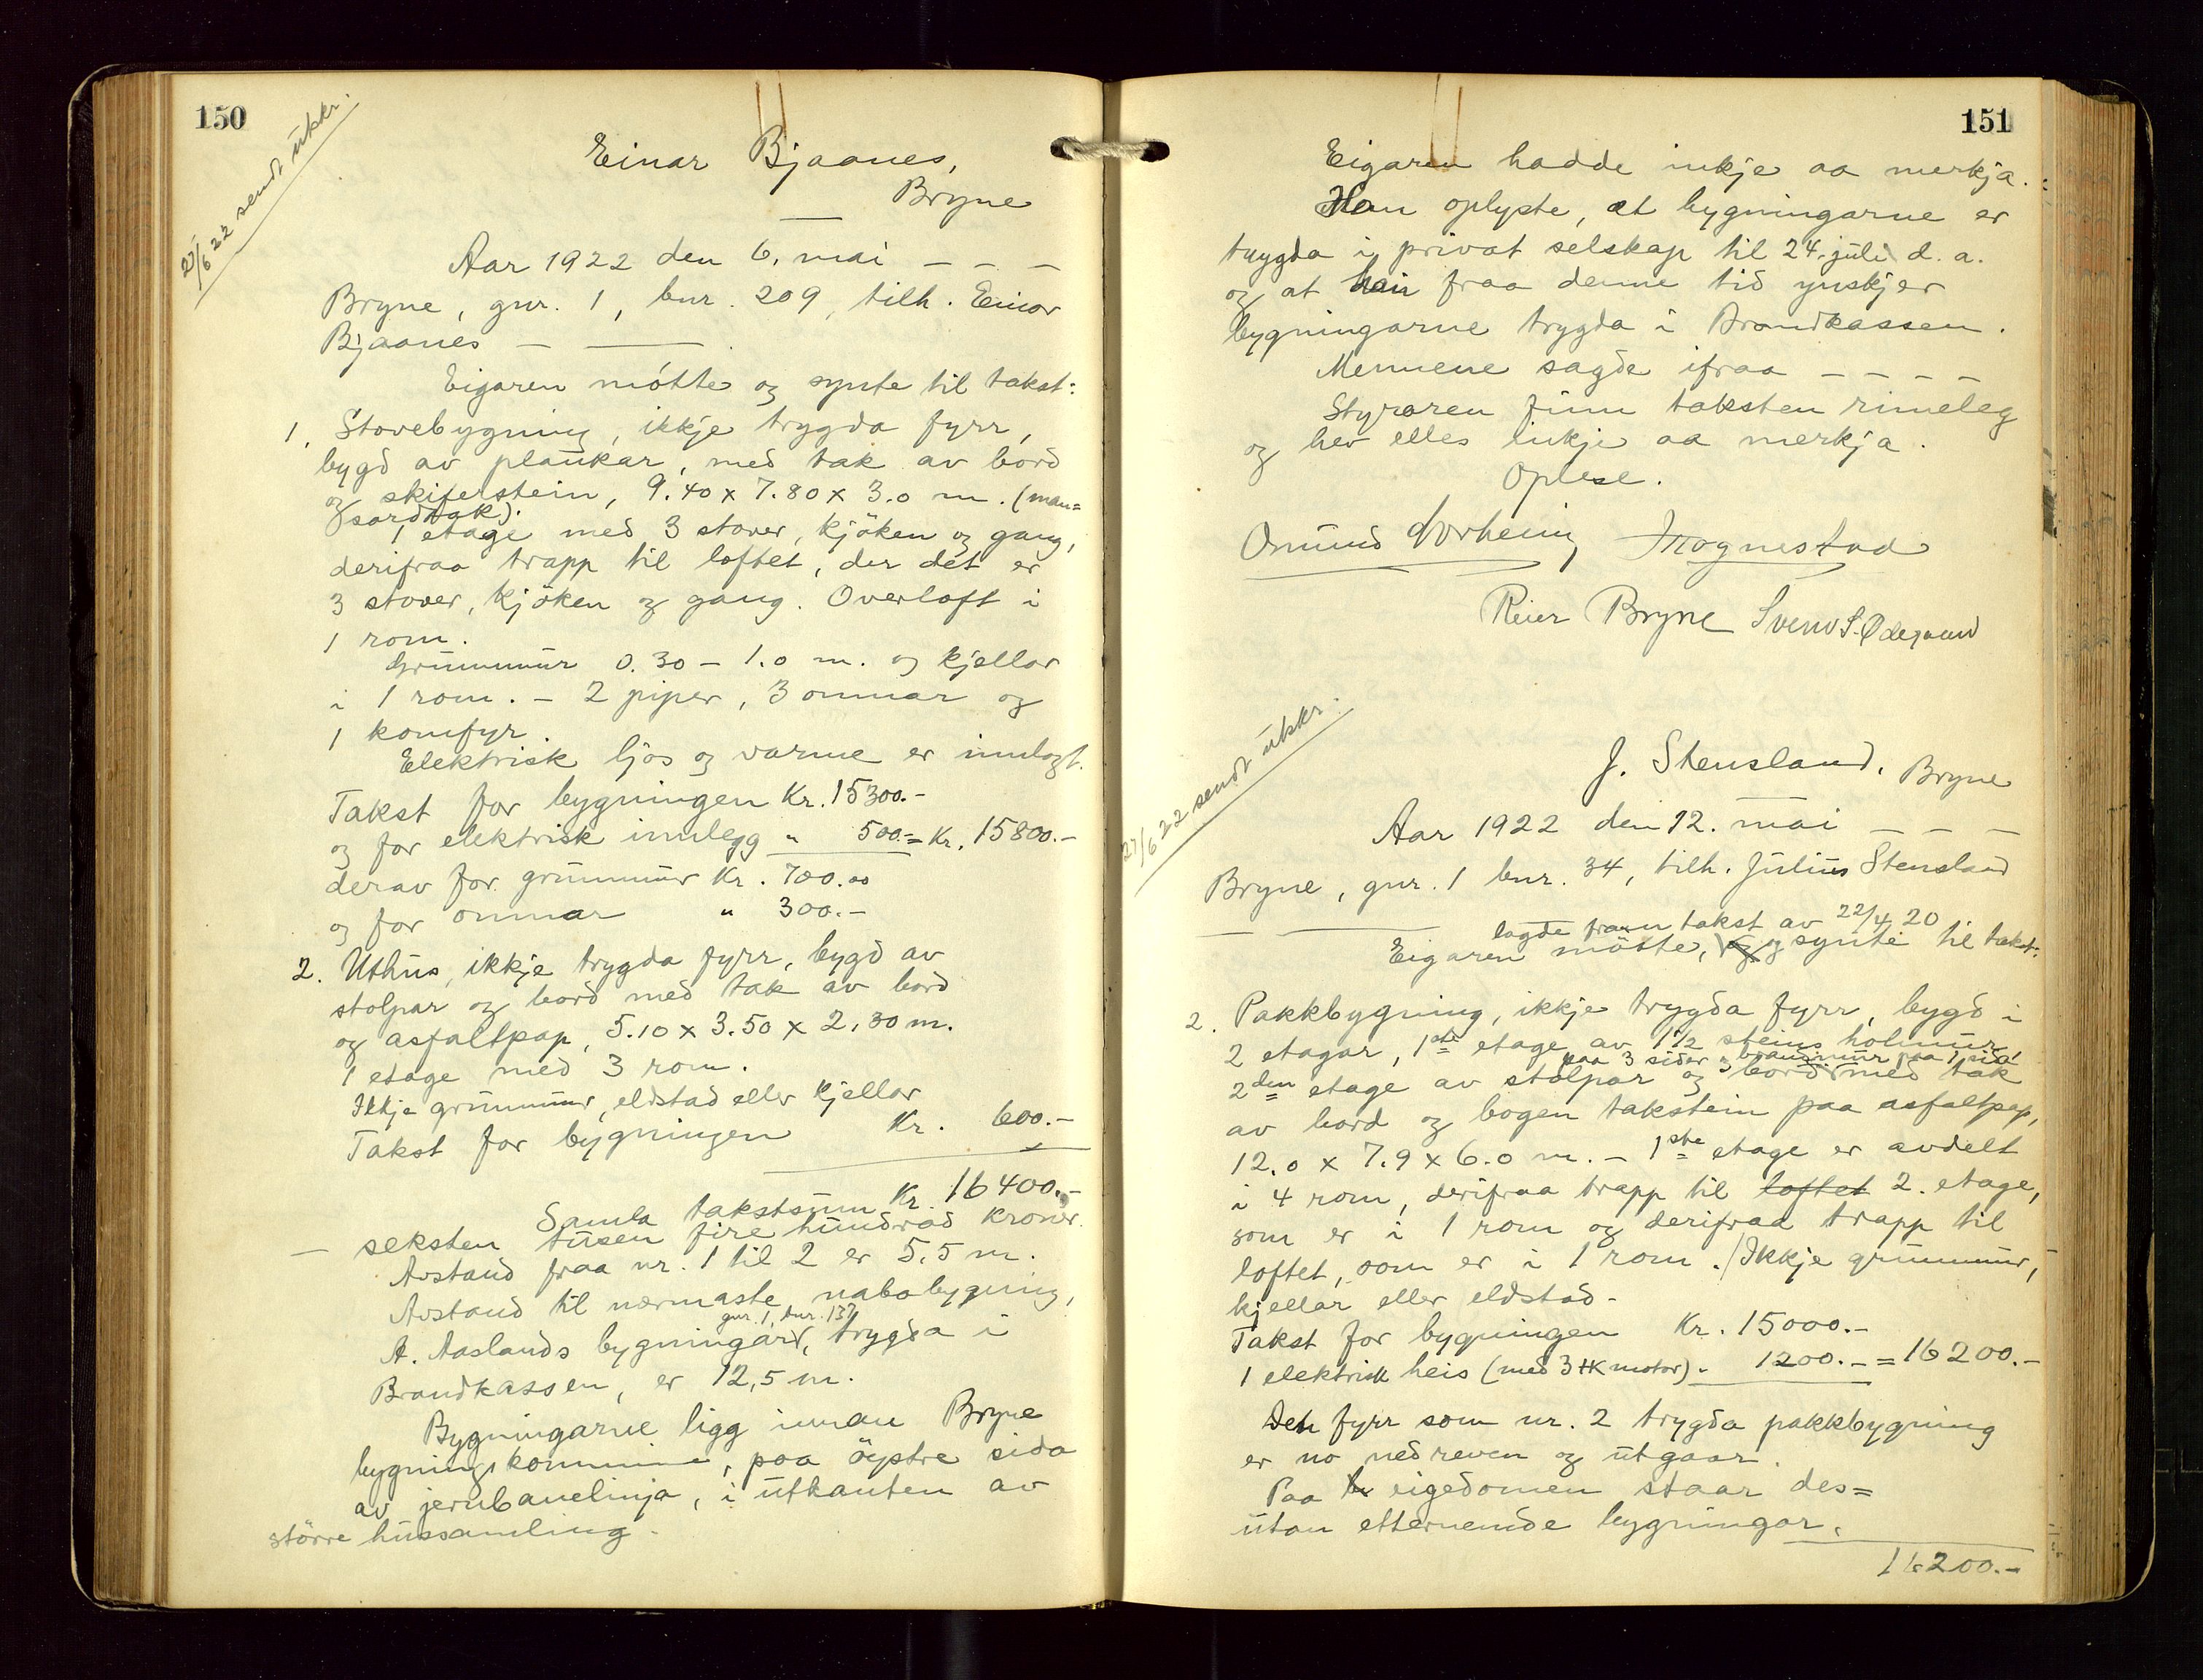 150
27/6 22 sendt utskr.
Einar Bjaanes,
Bryne
Aar 1922 den 6. mai – – –
Bryne, gnr. 1, bnr. 209, tilh. Einar
Bjaanes – ——
Eigaren mötte og synte til takst:
1. Stovebygning, ikkje trygda fyrr,
bygd av plankar, med tak av bord
og skiferstein, 9.40 x 7.80 x 3.0 m. (man=
sardtak).
1 etage med 3 stover, kjöken og gang,
derifraa trapp til loftet, der det er
3 stover, kjöken og gang. Overloft i
1 rom.
Grunnmur 0.30 – 1.0 m. og kjellar
i 1 rom. – 2 piper, 3 omnar og
1 komfyr.
Elektrisk ljos og varme er innlagt.
Takst for bygningen Kr. 15300.-
og for elektrisk innlegg " 500.= Kr. 15800.-
derav for grunnmur Kr. 700.00
og for omnar " 300.-
2. Uthus, ikkje trygda fyrr, bygd av
stolpar og bord med tak av bord
og asfaltpap, 5.10 x 3.50 x 2.30 m.
1 etage med 3 rom.
Ikkje grunnmur, eldstad eller kjellar
Takst for bygningen Kr. 600.-
Samla takstsum Kr. 16400.-
– seksten tusen fire hundrad kroner.
Avstand fraa nr. 1 til 2 er 5,5 m.
Avstand til nærmaste nabobygning,
gnr. 1, bnr. 137
A. Aaslands bygningar, trygda i
Brandkassen, er 12,5 m.
Bygningarne ligg innan Bryne
bygningskommune, paa öystre sida
av jernbanelinja, i utkanten av
större hussamling.
151
Eigaren hadde inkje aa merkja.
Han oplyste, at bygningarne er
trygda i privat selskap til 24. juli d. a.
og at han fraa denne tid ynskjer
bygningarne trygda i Brandkassen.
Mennene sagde ifraa – – – –
Styraren finn taksten rimeleg
og hev elles inkje aa merkja.
Oplese.
Omund Vorheim Magnestad
Reier Bryne Svend S. Ødegaard
27/6 22 sendt utskr.
J. Stensland, Bryne
Aar 1922 den 12. mai – – –
Bryne, gnr. 1 bnr. 34, tilh. Julius Stensland
— ——
lagde fram takst av 22/4 20
Eigaren mötte, og synte til takst:
2. Pakkbygning, ikkje trygda fyrr, bygd i
2 etagar, 1ste etage av 1 1/2 steins holmur,
paa 3 sider og brandmur paa 1 sida
2den etage av stolpar og bord med tak
av bord og bogen takstein paa asfaltpap,
12.0 x 7.9 x 6.0 m. – 1ste etage er avdelt
i 4 rom, derifraa trapp til loftet 2. etage,
som er i 1 rom og derifraa trapp til
loftet, som er i 1 rom. Ikkje grunnmur,
kjellar eller eldstad.
Takst for bygningen Kr. 15000.-
1 elektrisk heis (med 3 HK motor) " 1200.- = 16200.-
Den fyrr som nr. 2 trygda pakkbygning
er no nedreven og utgaar.
Paa eigedomen staar des=
utan etternemde bygningar.
16200.-